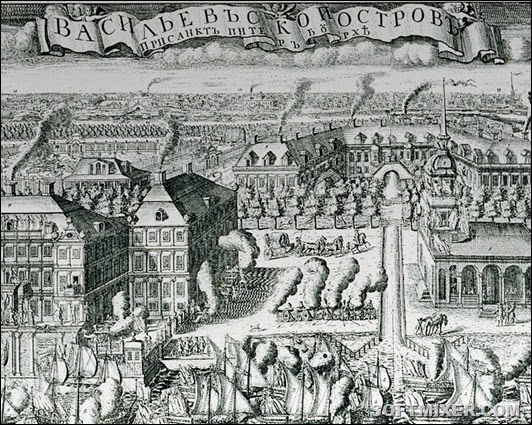 ВАСИЛЬЕВЪСКОИ ОСТРОВЪ
ПРИ САНКТЪ ПИТЕРЪБУРХѢ
SOFTMIXER.COM